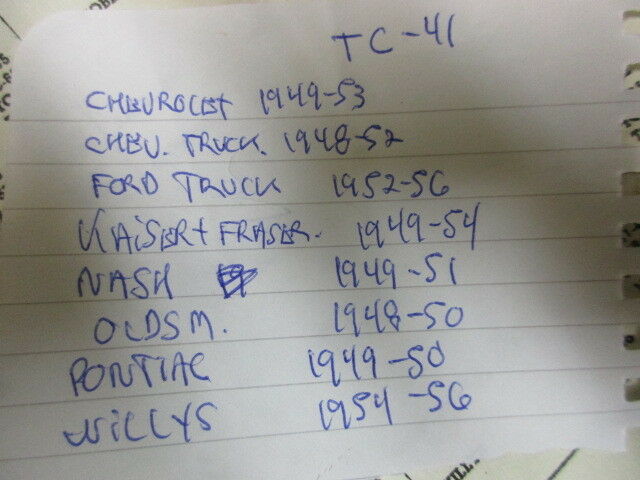 TC-41
CHEVROLET 1949-53
CHEV. TRUCK. 1948-52
FORD TRUCK 1952-56
KAISER + FRASER. 1949-54
NASH 1949-51
OLDSM. 1948-50
PONTIAC 1949-50
WILLYS 1954-56